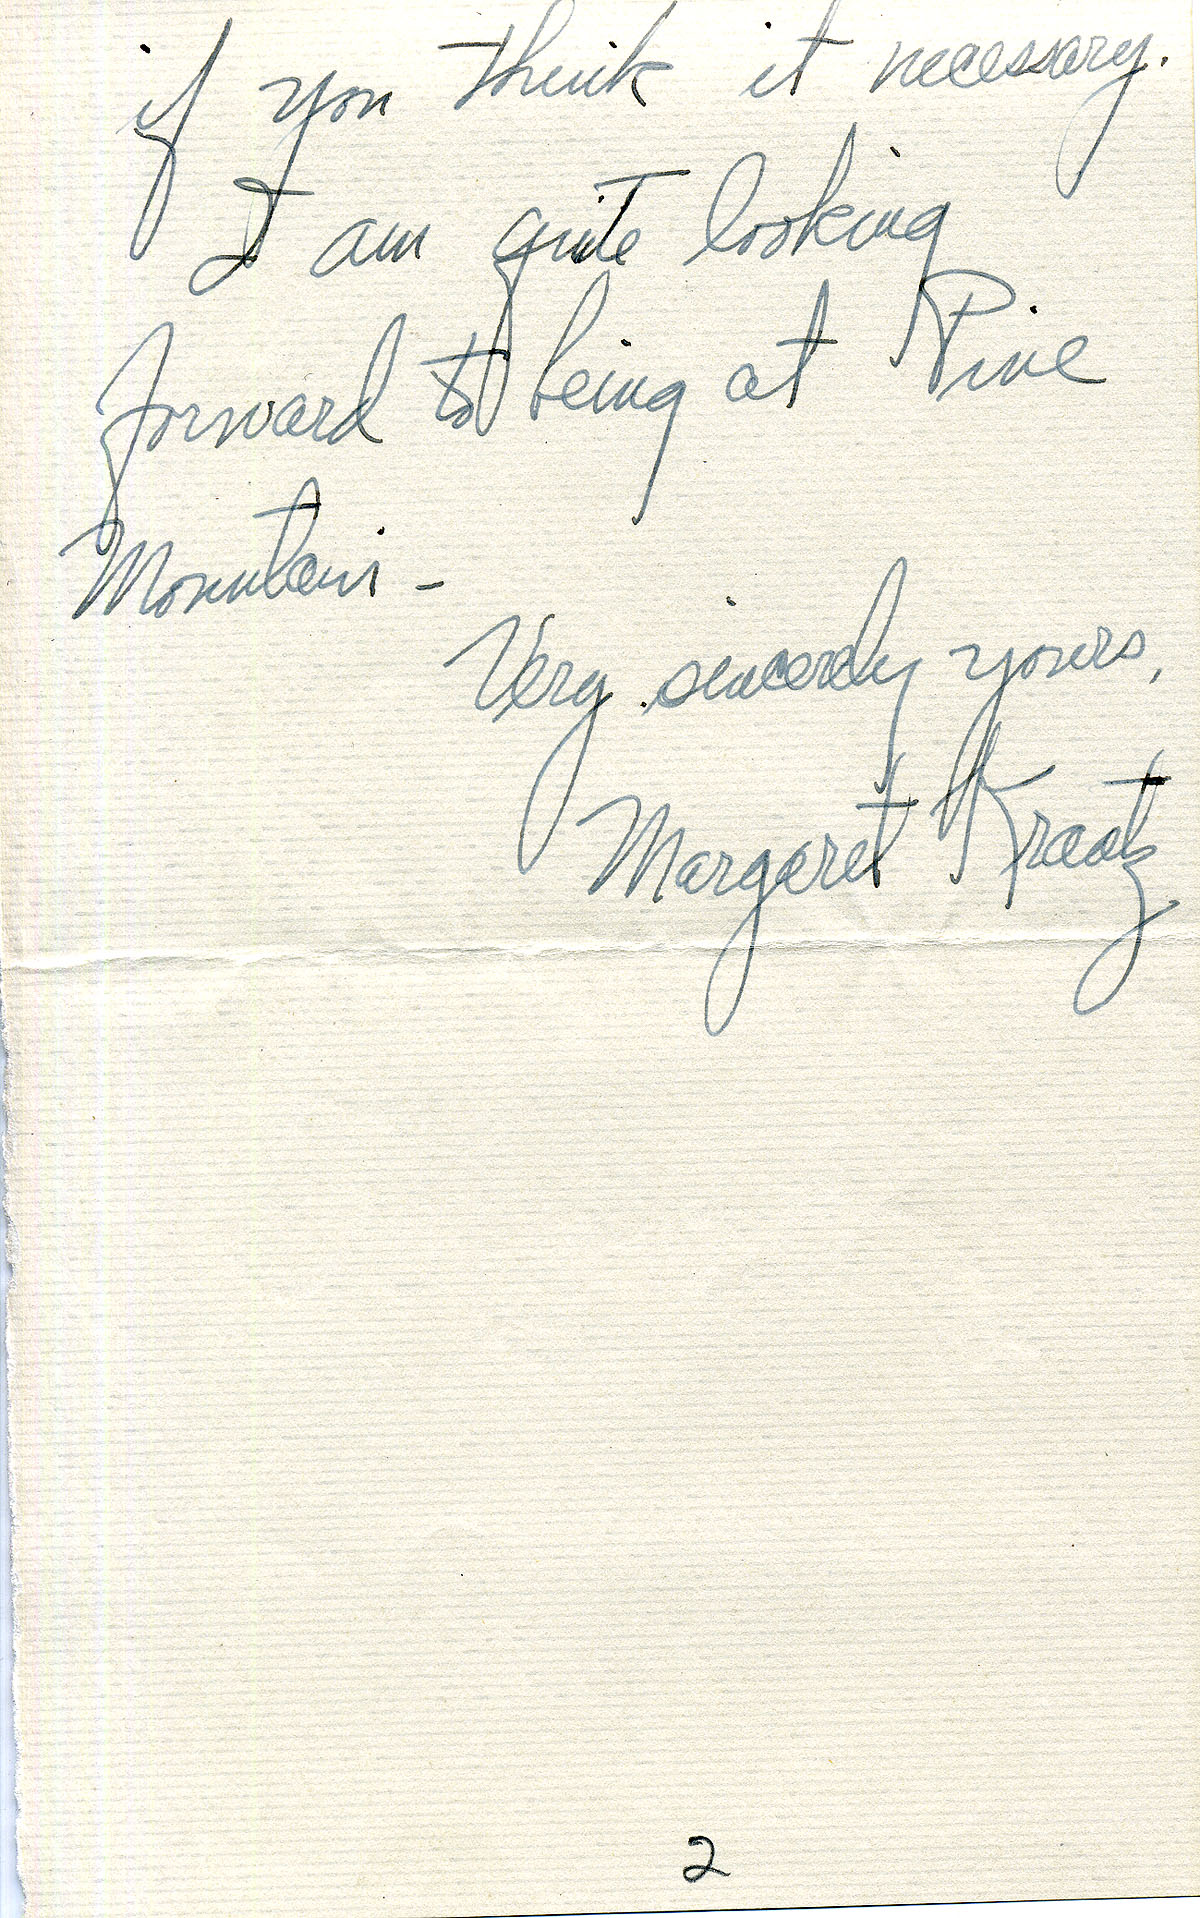 if you think it necessary.
I am quite looking
forward to being at Pine
Mountain -
Very sincerely yours,
Margaret Kraatz
2